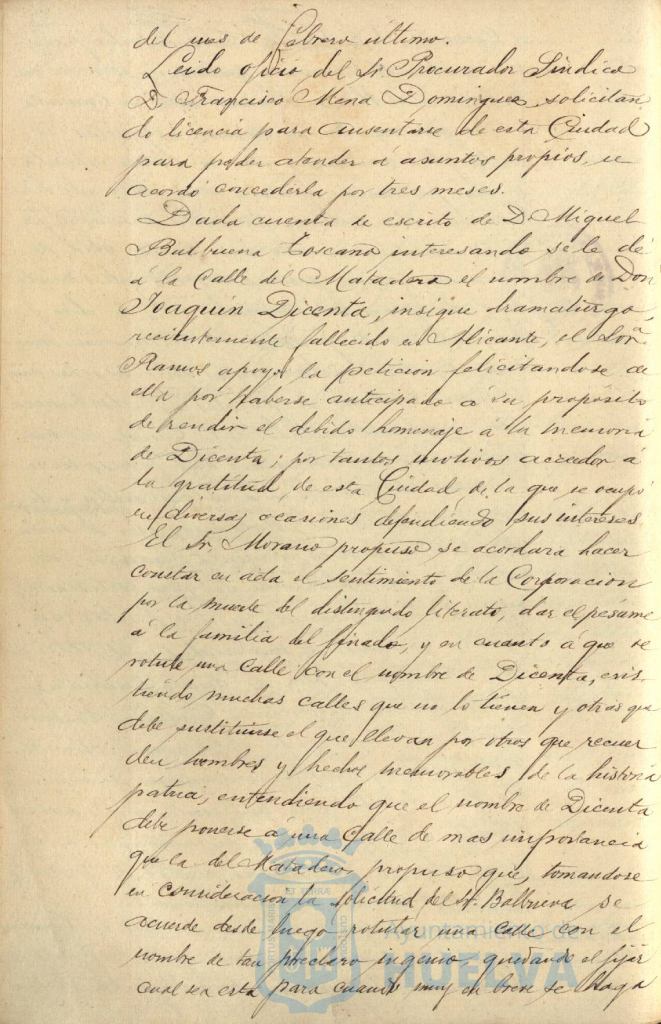 del mes de Febrero último.
Leido oficio del Sr Procurador Síndico
D. Francisco Mena Dominguez, solicitan
do licencia para ausentarse de esta Ciudad
para poder atender á asuntos propios, se
acordó concederla por tres meses.
Dada cuenta de escrito de D. Miguel
Balbuena Toscano interesando se le dé
á la Calle del Matadero el nombre de Don
Joaquín Dicenta, insigne dramaturgo,
recientemente fallecido en Alicante, el Sor.
Ramos apoyó la petición felicitandose de
ella por haberse anticipado á su propósito
de rendir el debido homenaje á la memoria
de Dicenta; por tantos motivos acreedor á
la gratitud de esta Ciudad de la que se ocupó
en diversas ocasiones defendiendo sus intereses.
El Sr. Morano propuso se acordara hacer
constar en acta el sentimiento de la Corporación
por la muerte del distinguido literato, dar el pésame
á la familia del finado, y en cuanto á que se
rotule una Calle con el nombre de Dicenta, exis-
tiendo muchas calles que no lo tienen y otras que
debe sustituirse el que llevan por otros que recuer
den hombres y hechos memorables de la historia
patria, entendiendo que el nombre de Dicenta
debe ponerse á una Calle de mas importancia
que la del Matadero, propuso que, tomandose
en consideración la solicitud del Sr. Balbuena se
acuerde desde luego rotular una calle con el
nombre de tan preclaro ingenio, quedando el fijar
cual sea esta para cuando muy en breve se haga
Ayuntamiento de
HUELVA